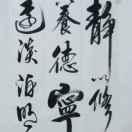 靜以修
養德寧
遠淡泊明